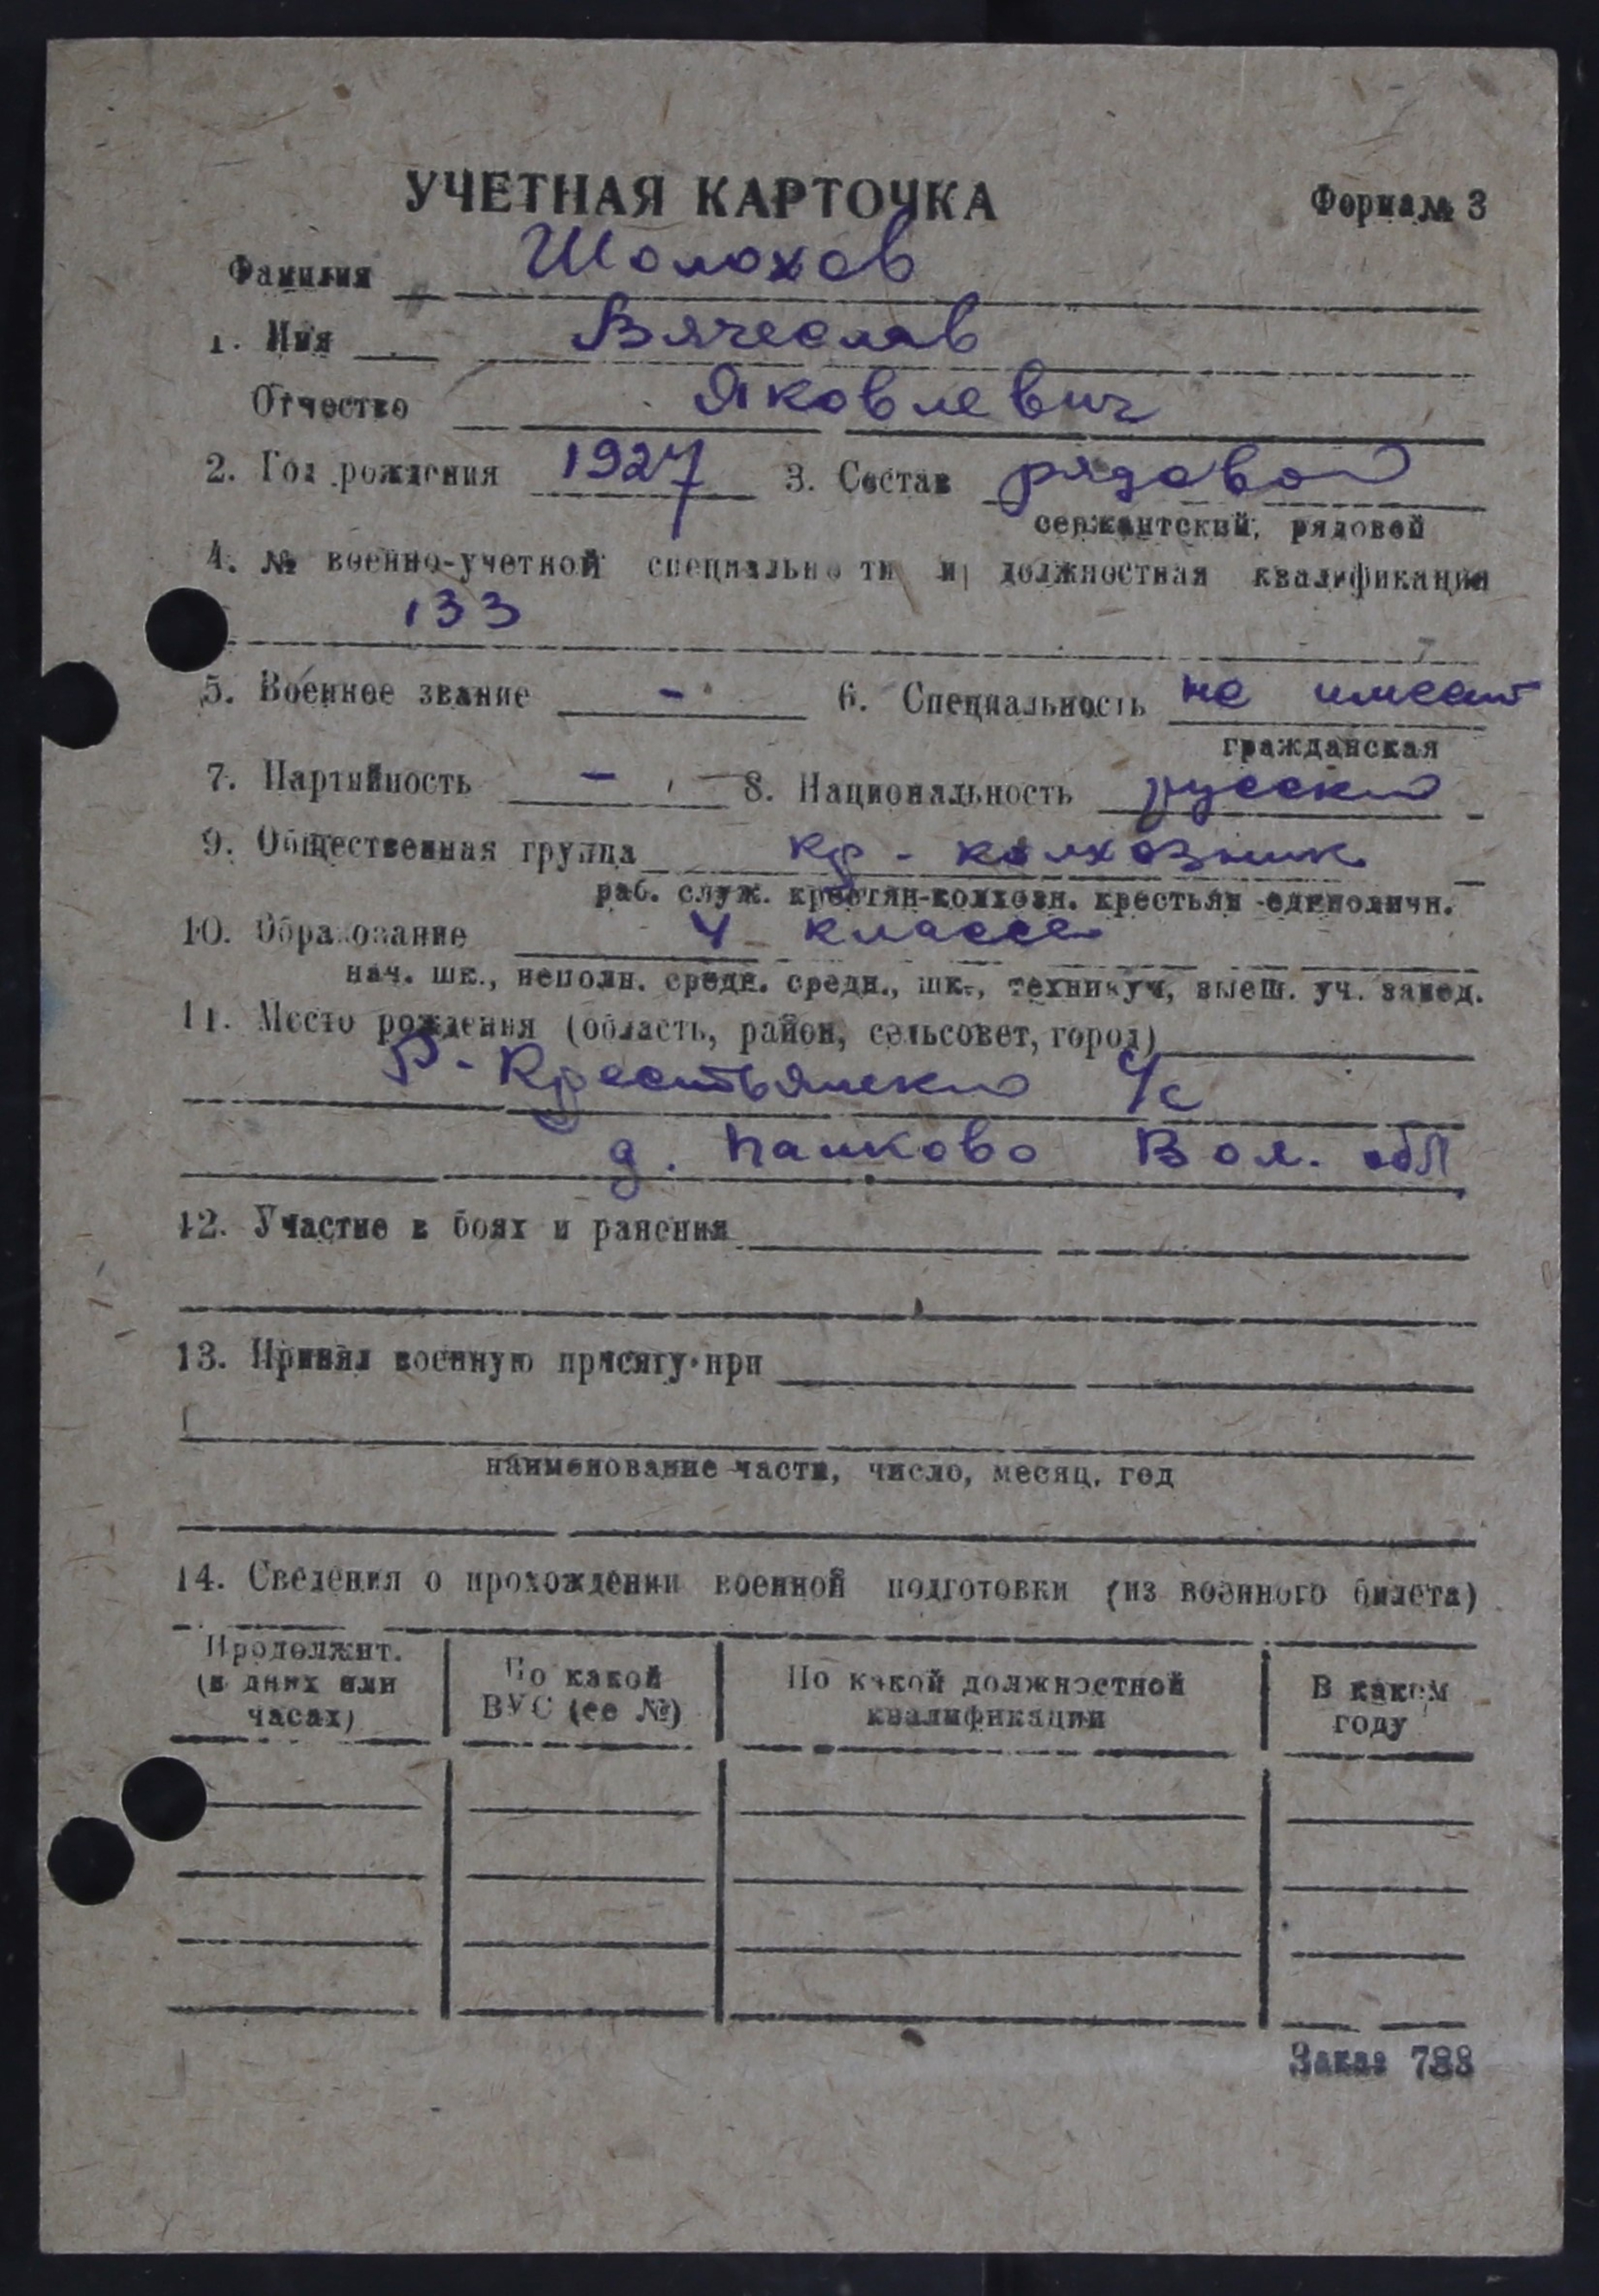 УЧЕТНАЯ КАРТОЧКА Форма № 3
Фамилия Шолохов
1. Имя Вячеслав
Отчество Яковлевич
2. Год рождения 1927 3. Состав рядовой
сержантский, рядовой
4. № военно-учетной специальности и должностная квалификация
133
5. Военное звание - 6. Специальность не имеет
гражданская
7. Партийность - 8. Национальность русский
9. Общественная группа кр - колхозник
раб. служ. крестян-колхозн. крестьян -единоличн.
10. Образование 4 класса
нач. шк., неполн. средн. средн., шк., техникуч, высш. уч. завед.
11. Место рождения (область, район, сельсовет, город)
Р-Крестьянский с/с
д. Панково Вол. обл
12. Участие в боях и ранения
13. Принял военную присягу при
наименование части, число, месяц, год
14. Сведения о прохождении военной подготовки (из военного билета)
Продолжит. (в днях или часах) По какой ВУС (ее №) По какой должностной квалификации В каком году
Заказ 788